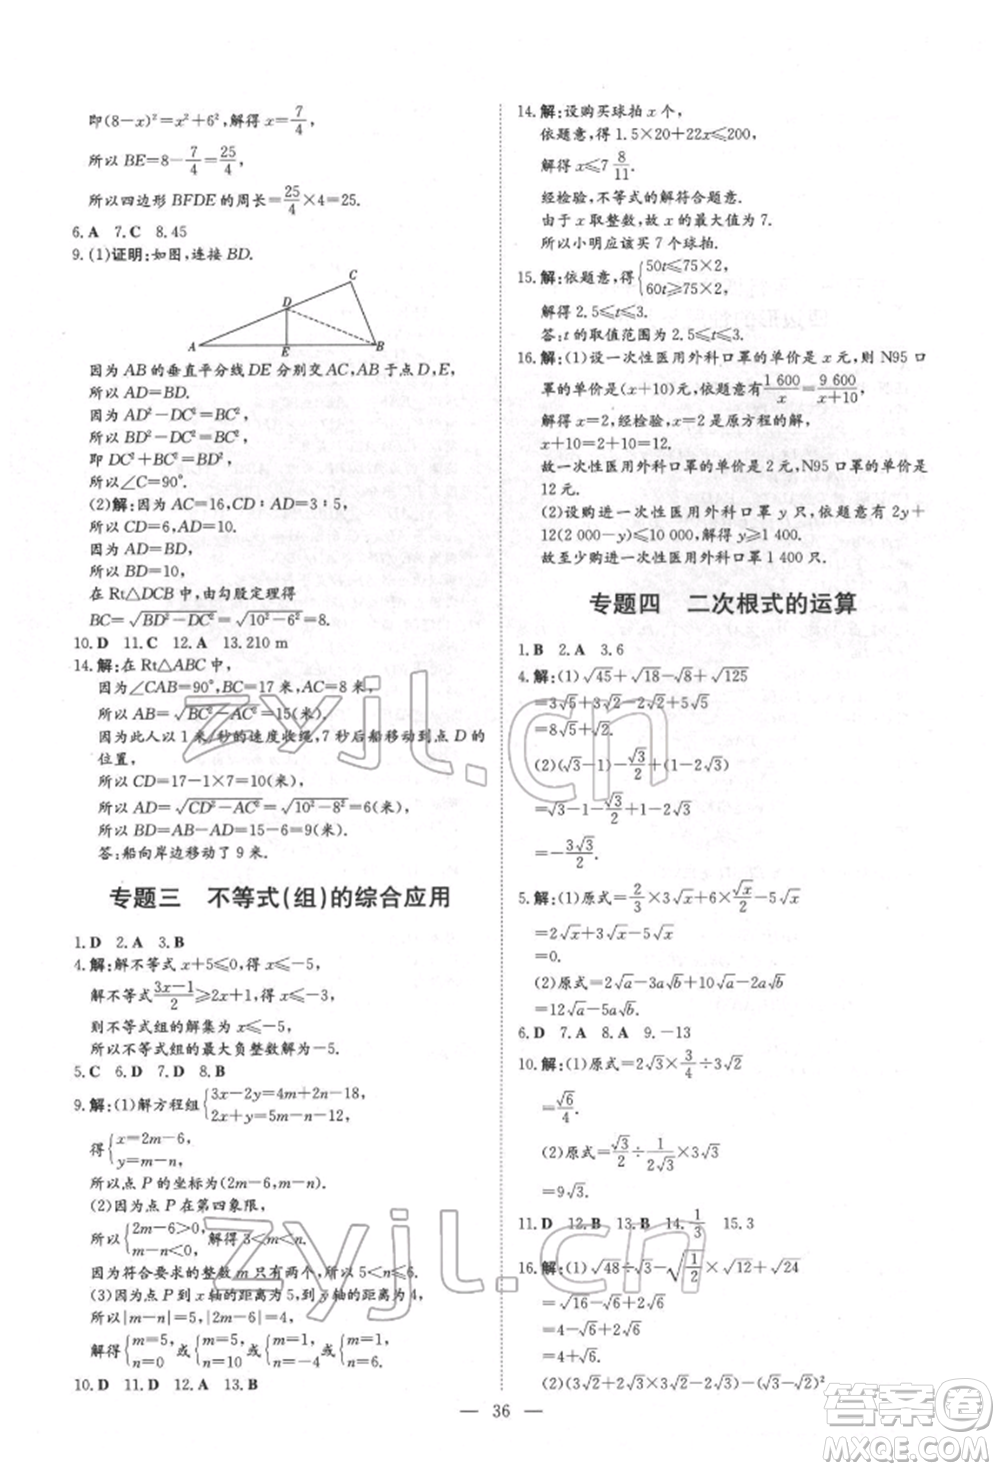 即(8-x)²=x²+6²,解得 x=7/4,
所以 BE=8-7/4=25/4,
所以四边形 BFDE 的周长=25/4×4=25.
6. A 7. C 8. 45
9. (1)证明:如图,连接 BD.
C
D
A
E
B
因为 AB 的垂直平分线 DE 分别交 AC,AB 于点 D,E,
所以 AD=BD.
因为 AD²-DC²=BC²,
所以 BD²-DC²=BC²,
即 DC²+BC²=BD²,
所以∠C=90°.
(2)解:因为 AC=16,CD∶AD=3∶5,
所以 CD=6,AD=10.
所以 BD=10,
在 Rt△DCB 中,由勾股定理得
BC=√(BD²-DC²)=√(10²-6²)=8.
10. D 11. C 12. A 13. 210 m
14. 解:在 Rt△ABC 中,
因为∠CAB=90°,BC=17 米,AC=8 米,
所以 AB=√(BC²-AC²)=15(米).
因为此人以 1 米/秒的速度收绳,7 秒后船移动到点 D 的
位置,
所以 CD=17-1×7=10(米).
所以 AD=√(CD²-AC²)=√(10²-8²)=6(米).
所以 BD=AB-AD=15-6=9(米).
答:船向岸边移动了 9 米.
专题三 不等式(组)的综合应用
1. D 2. A 3. B
4. 解:解不等式 x+5≤0,得 x≤-5,
解不等式 (3x-1)/2≥2x+1,得 x≤-3,
则不等式组的解集为 x≤-5,
所以不等式组的最大负整数解为-5.
5. C 6. D 7. D 8. B
9. 解:(1)解方程组{3x-2y=4m+2n-18,
2x+y=4m-n-12,
得{x=2m-6,
y=m-n,
所以点 P 的坐标为(2m-6,m-n).
(2)因为点 P 在第四象限,
所以{2m-6>0,
m-n<0, 解得 3<m<n.
因为符合要求的整数 m 只有两个,所以 5<n≤6.
(3)因为点 P 到 x 轴的距离为5,到 y 轴的距离为4,
所以|m-n|=5,|2m-6|=4,
解得{m=5,
n=0 或{m=5,
n=10 或{m=1,
n=-4 或{m=1,
n=6.
10. D 11. D 12. A 13. B
14. 解:设购买球拍 x 个,
依题意,得 1.5×20+22x≤200,
解得 x≤7 8/11.
经检验,不等式的解符合题意.
由于 x 取整数,故 x 的最大值为 7.
所以小明应该买 7 个球拍.
15. 解:依题意,得{50t≤75×2,
60t≥75×2,
解得 2.5≤t≤3.
答:t 的取值范围为 2.5≤t≤3.
16. 解:(1)设一次性医用外科口罩的单价是 x 元,则 N95 口
罩的单价是(x+10)元,依题意有 1 600/x=9 600/(x+10),
解得 x=2,经检验,x=2 是原方程的解,
x+10=2+10=12.
故一次性医用外科口罩的单价是 2 元,N95 口罩的单价是
12 元.
(2)设购进一次性医用外科口罩 y 只,依题意有 2y+
12(2 000-y)≤10 000,解得 y≥1 400.
故至少购进一次性医用外科口罩 1 400 只.
专题四 二次根式的运算
1. B 2. A 3. 6
4. 解:(1)√45+√18-√8+√125
=3√5+3√2-2√2+5√5
=8√5+√2.
(2)(√3-1)-√3/2+(1-2√3)
=√3-1-√3/2+1-2√3
=-3√3/2.
5. 解:(1)原式=2/3×3√x+6×√x/2-5√x
=2√x+3√x-5√x
=0.
(2)原式=2√a-3a√a+10√a-2a√a
=12√a-5a√a.
6. D 7. A 8. A 9. -13
10. 解:(1)原式=2√3×3/4÷3√2
=√6/4.
(2)原式=√3/2÷1/(2√3)×3√3
=9√3.
11. D 12. B 13. B 14. 1/3 15. 3
16. 解:(1)√48÷√3-√(1/2)×√12+√24
=√16-√6+2√6
=4-√6+2√6
=4+√6.
(2)(3√2+2√3)(3√2-2√3)-(√3-√2)²
36
zyjl.cn
zyjl.cn
答案圈
MXQE.COM